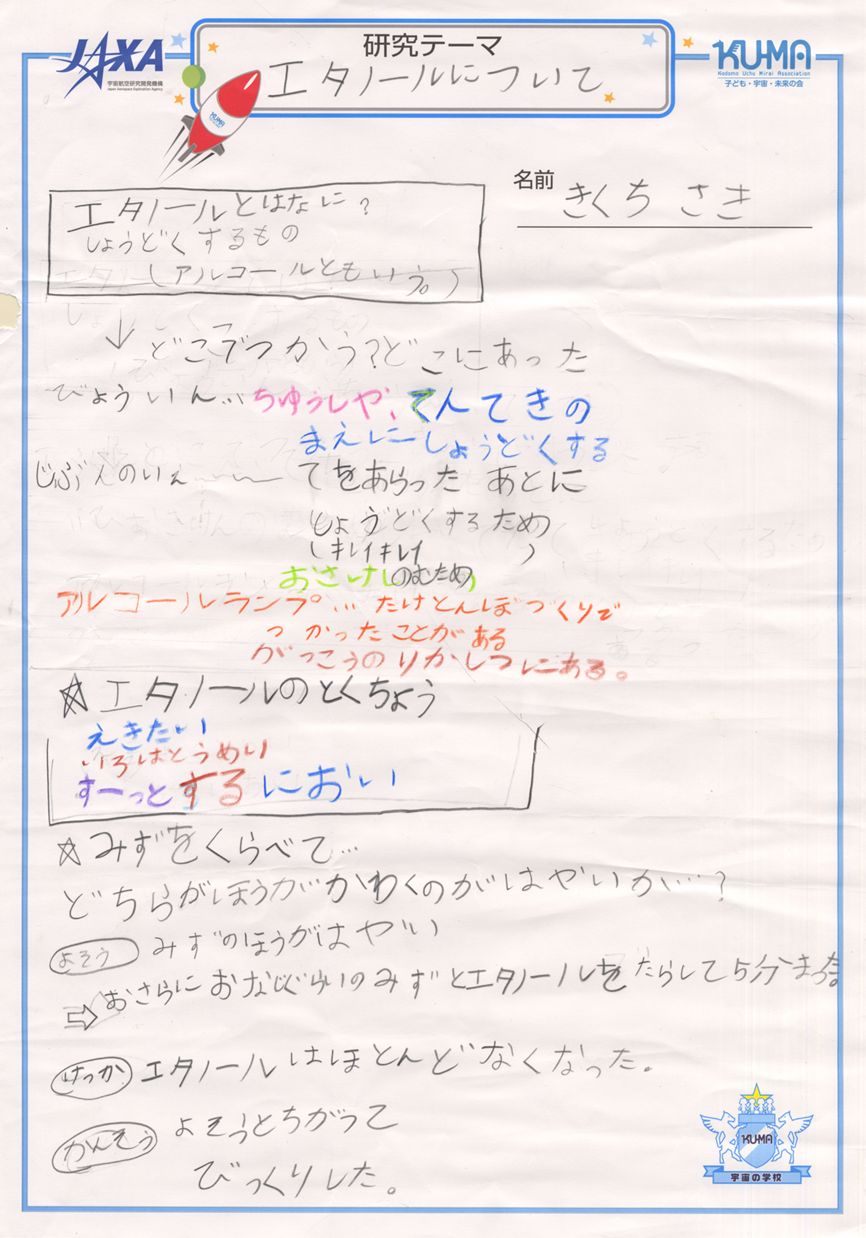 JAXA
宇宙航空研究開発機構
Japan Aerospace Exploration Agency
研究テーマ
エタノールについて
KU-MA
Kodomo Uchu Mirai Association
子ども・宇宙・未来の会
KU-MA
名前 きくち さき
エタノールとはなに?
しょうどくするもの
(アルコールともいう。)
↓ どこでつかう?どこにあった
びょういん… ちゅうしゃ、てんてきの
まえにしょうどくする
じぶんのいえ てをあらった あとに
しょうどくするため
(キレイキレイ)
おさけ(のむため)
アルコールランプ… たけとんぼづくりで
つかったことがある
がっこうのりかしつにある。
☆エタノールのとくちょう
えきたい
いろはとうめい
すーっとするにおい
☆みずをくらべて…
どちらがほうがかわくのがはやいか…?
よそう みずのほうがはやい
⇨ おさらにおなじぐらいのみずとエタノールをたらして5分まつ。
けっか エタノールはほとんどなくなった。
かんそう よそうとちがって
びっくりした。
KU-MA
宇宙の学校